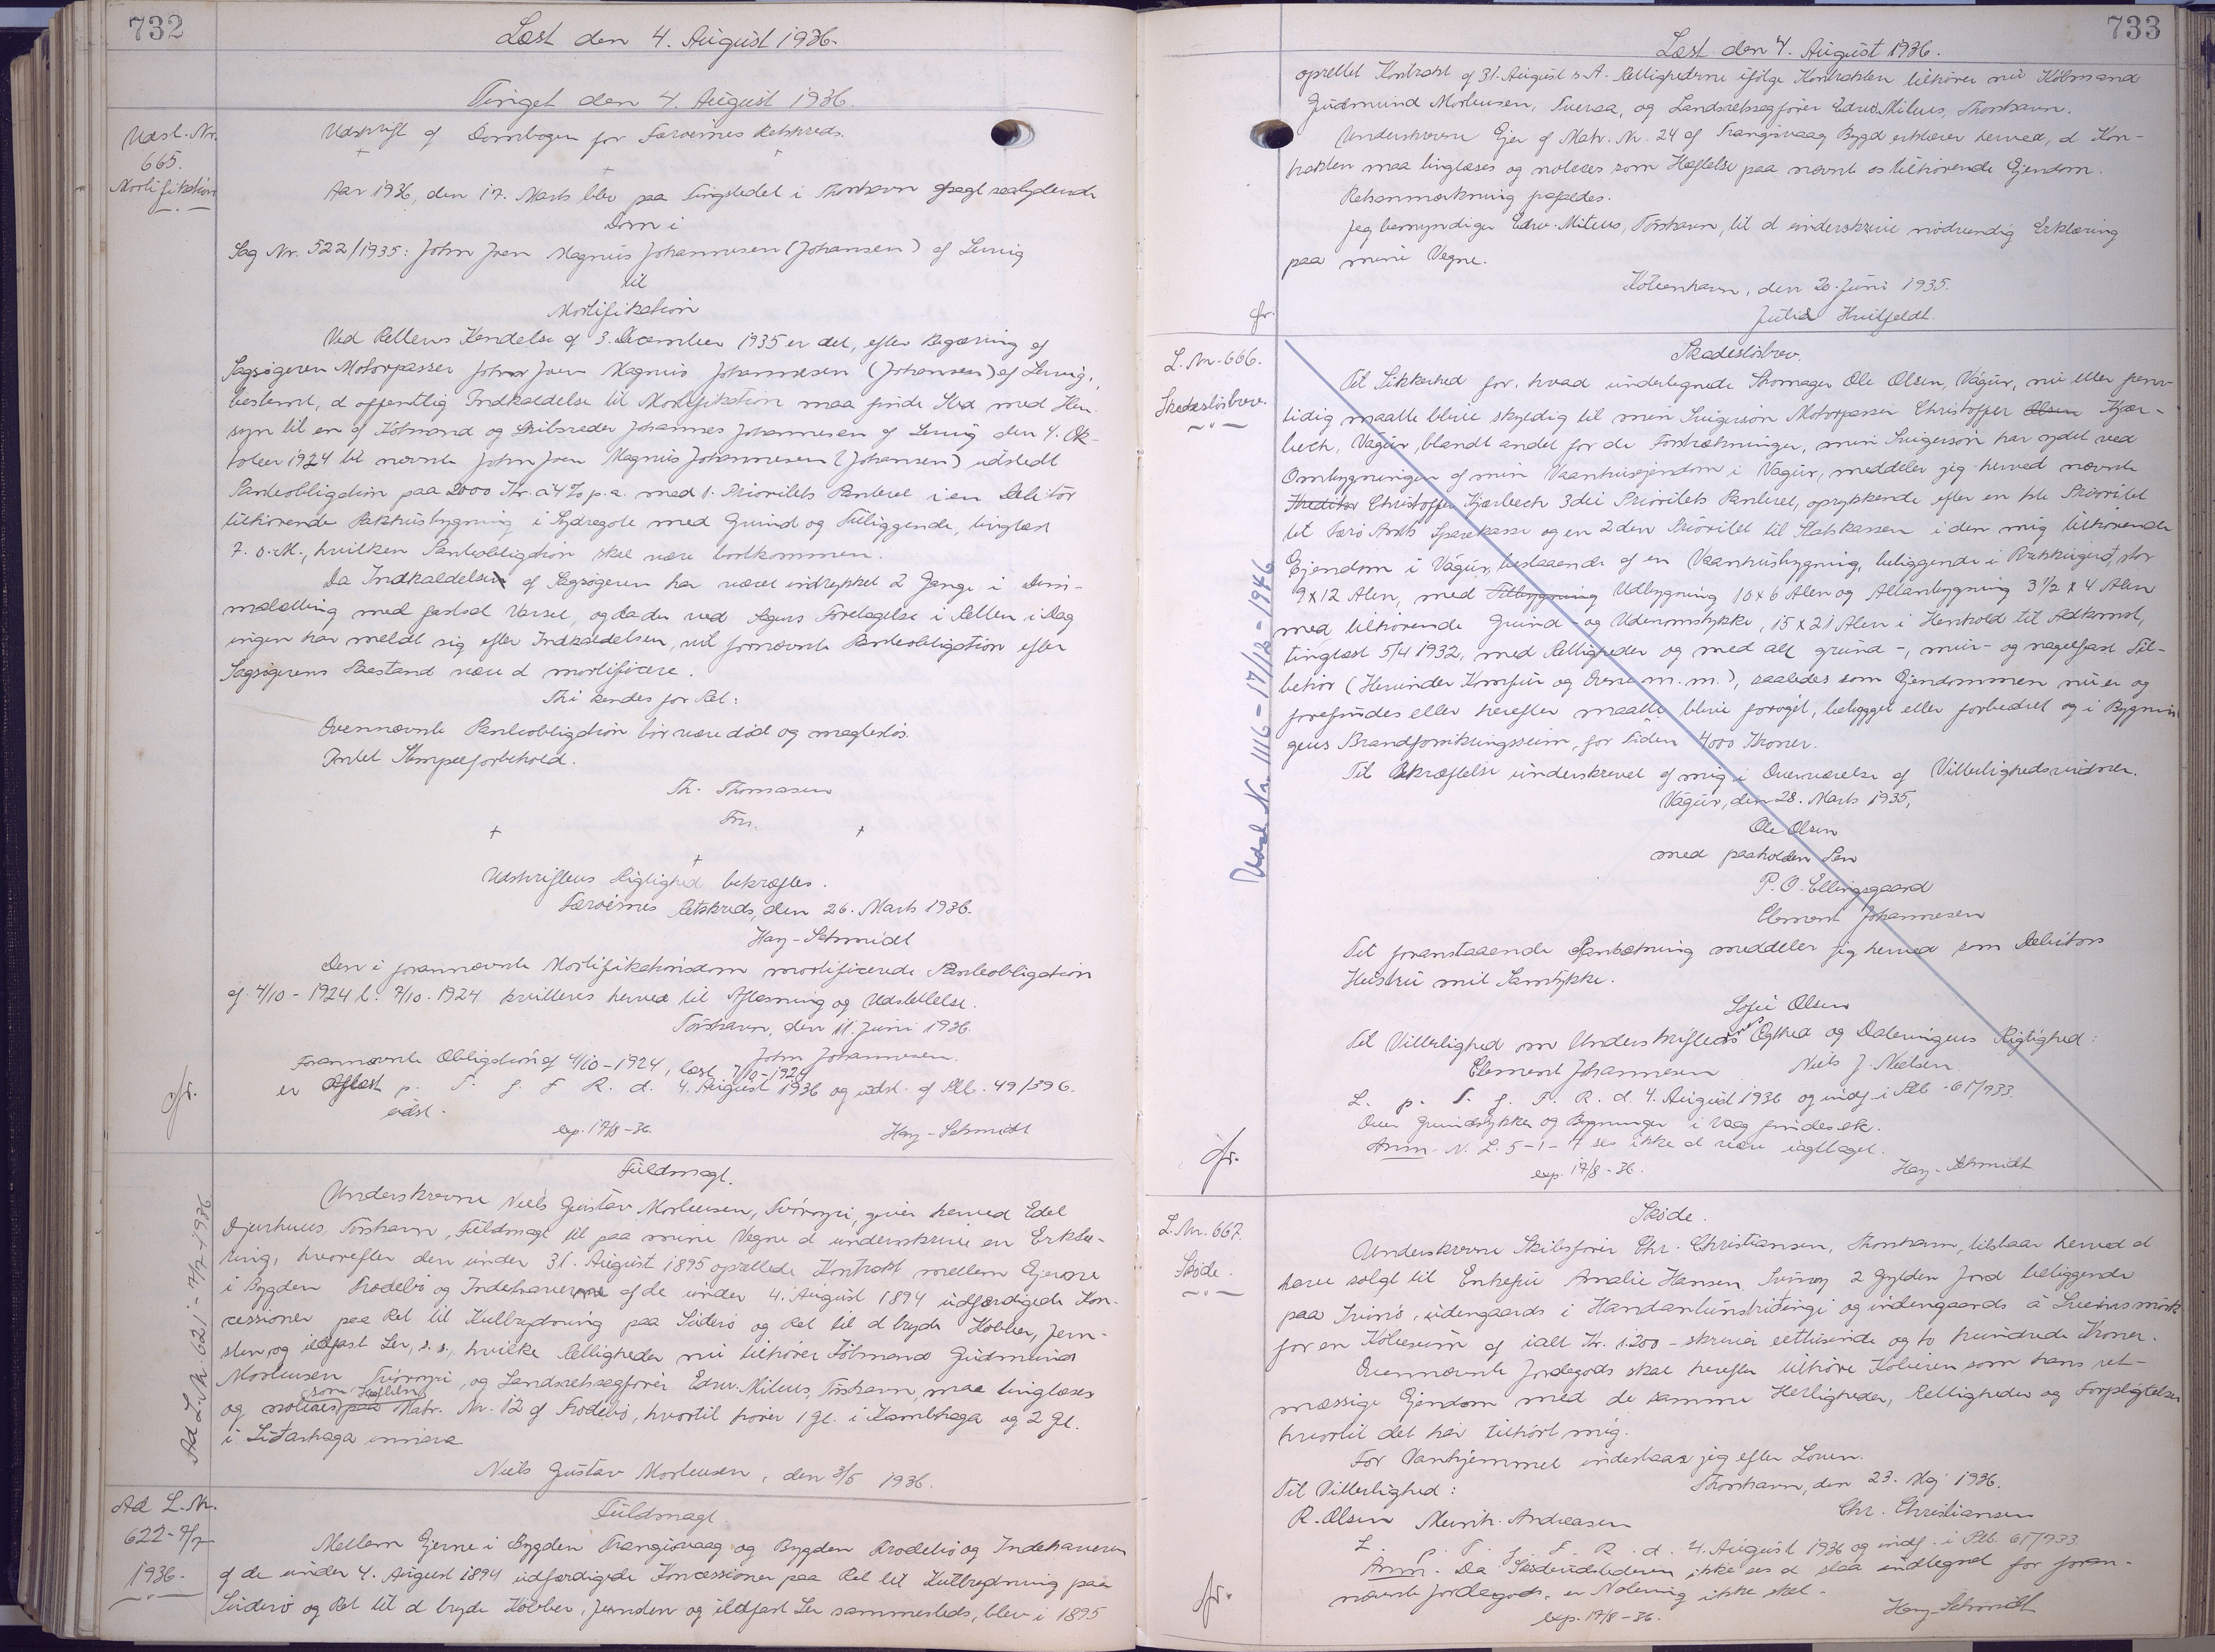 732
Læst den 4. August 1936.
Tinget den 4. August 1936.
Udsl. Nr.
665.
Mortifikation
Udskrift af Dombogen for Færøernes Retskreds.
Aar 1936, den 17. Marts blev paa Tingstedet i Thorshavn afsagt saalydende
Dom i
Sag Nr. 522/1935: John Jven Magnus Johannesen (Johansen) af Lervig
til
Mortifikation
Ved Rettens Kendelse af 3. December 1935 er det, efter Begæring af
Sagsøgeren Motorpasser John Jven Magnus Johannesen (Johansen) af Lervig,
bestemt, at offentlig Indkaldelse til Mortifikation maa finde Sted med Hen-
syn til en af Købmand og Skibsreder Johannes Johannesen af Lervig den 4. Ok-
tober 1924 til nævnte John Jven Magnus Johannesen (Johansen) udstedt
Panteobligation paa 2000 Kr. a 4 % p.a. med 1. Prioritets Panteret i en Debitor
tilhørende Pakhusbygning i Sydregøte med Grund og Tilliggende, tinglæst
7. s. M., hvilken Panteobligation skal være bortkommen.
Da Indkaldelsen af Sagsøgeren har været indrykket 2 Gange i Dim-
malætting med fastsat Varsel, og da der ved Sagens Foretagelse i Retten i Dag
ingen har meldt sig efter Indkaldelsen, vil fornævnte Panteobligation efter
Sagsøgerens Paastand være at mortificere.
Thi kendes for Ret:
Ovennævnte Panteobligation bør være død og magtesløs.
Intet Stempelforbehold.
Th. Thomasen
Fm.
Udskriftens Rigtighed bekræftes.
Færøernes Retskreds, den 26. Marts 1936.
Hay-Schmidt
Den i forannævnte Mortifikationsdom mortificerede Panteobligation
af 4/10-1924 l. 7/10.1924 kvitteres herved til Aflæsning og Udslettelse.
Tórshavn, den 11. Juni 1936.
John Johannesen.
Forannævnte Obligation af 4/10-1924, læst 7/10-1924
er Aflæst p. T. f. F. R. d. 4. August 1936 og udsl. af Ptb. 49/396.
udsl.
exp. 17/8-36.
Hay-Schmidt
fr.
Ad L. Nr. 621 - 7/7-1936
Fuldmagt.
Underskrevne Niels Gustav Mortensen, Tvóroyri, giver herved Edel
Djurhuus, Tórshavn, Fuldmagt til paa mine Vegne at underskrive en Erklæ-
ring, hvorefter den under 31. August 1895 oprettede Kontrakt mellem Ejerne
i Bygden Frodebø og Indehaverne af de under 4. August 1894 udfærdigede Kon-
cessioner paa Ret til Kulbrydning paa Suderø og Ret til at bryde Kobber, Jern-
sten og ildfast Ler, s. s., hvilke Rettigheder nu tilhører Købmand Gudmund
Mortensen Tvóroyri, og Landsretssagfører Edw. Mitens, Tórshavn, maa tinglæses
og noteres som Hæftelse paa Matr. Nr. 12 af Frodebø, hvortil hører 1 Gl. i Kambhaga og 2 Gl.
i Liðarhaga innara
Niels Gustav Mortensen, den 3/5 1936.
Ad L. Nr.
622-7/7
1936.
Fuldmagt.
Mellem Ejerne i Bygden Trangisvaag og Bygden Frodebø og Indehaveren
af de under 4. August 1894 udfærdigede Koncessioner paa Ret til Kulbrydning paa
Suderø og Ret til at bryde Kobber, Jernsten og ildfast Ler sammesteds, blev i 1895
733
Læst den 4. August 1936.
oprettet Kontrakt af 31. August s. A. Rettighederne ifølge Kontrakten tilhører nu Købmand
Gudmund Mortensen, Tveraa, og Landsretssagfører Edw. Mitens, Thorshavn.
Underskrevne Ejer af Matr. Nr. 24 af Trangisvaag Bygd erklærer herved, at Kon-
trakten maa tinglæses og noteres som Hæftelse paa nævnte os tilhørende Ejendom.
Retsanmærkning frafaldes.
Jeg bemyndiger Edw. Mitens, Tórshavn, til at underskrive nødvendig Erklæring
paa mine Vegne.
København, den 20. Juni 1935.
Julia Hvitfeldt.
fr.
L. Nr. 666.
Skadesløsbrev.
Udsl. Nr. 1116 - 17/12 - 1946
Skadesløsbrev.
Til Sikkerhed for, hvad undertegnede Skomager Ole Olsen, Vágur, nu eller frem-
tidig maatte blive skyldig til min Svigersøn Motorpasser Christoffer Olsen Kjær-
bech, Vágur, blandt andet for de Forstrækninger, min Svigersøn har ydet ved
Ombygningen af min Vaanhusejendom i Vágur, meddeler jeg herved nævnte
Kreditor Christoffer Kjærbech 3die Prioritets Panteret, oprykkende efter en 1ste Prioritet
til Færø Amts Sparekasse og en 2den Prioritet til Statskassen i den mig tilhørende
Ejendom i Vágur, bestaaende af en Vaanhusbygning, beliggende i , stor
9 x 12 Alen, med Tilbygning Udbygning 10 x 6 Alen og Altanbygning 3 1/2 x 4 Alen
med tilhørende Grund- og Udenomstykke, 15 x 21 Alen i Henhold til Adkomst,
tinglæst 5/4 1932, med Rettigheder og med alt grund-, mur- og nagelfast Til-
behør (Herunder Komfur og Ovne m. m.), saaledes som Ejendommen nu er og
forefindes eller herefter maatte blive forøget, bebygget eller forbedret og i Bygnin-
gens Brandforsikringssum, for Tiden 4000 Kroner.
Til Bekræftelse underskrevet af mig i Overværelse af Vitterlighedsvidner.
Vágur, den 28. Marts 1935,
Ole Olsen
med paaholden Pen
P. O. Ellingsgaard
Clement Johannesen
Til foranstaaende Pantsætning meddeler jeg herved som Debitors
Hustru mit Samtykke.
Sofie Olsen
Til Vitterlighed om Underskrifternes Ægthed og Dateringens Rigtighed:
Clement Johannesen Niels J. Nielsen.
L. p. T. f. F. R. d. 4. August 1936 og indf. i Ptb. 61/733.
Over Grundstykker og Bygninger i Vaag findes ek.
Anm. N. L. 5-1-7 ses ikke at være iagttaget.
exp. 17/8-36.
Hay-Schmidt
fr.
L. Nr. 667.
Skøde.
Skøde.
Underskrevne Skibsfører Chr. Christiansen, Thorshavn, tilstaar herved at
have solgt til Enkefru Amalie Hansen Svinoy 2 Gylden Jord beliggende
paa Svinø, udengaards i Handanlunstriðingi og indengaards á Sveinsmørk
for en Købesum af ialt Kr. 1.200 - skriver ettusinde og to hundrede Kroner.
Ovennævnte Jordegods skal herefter tilhøre Køberen som hans ret-
mæssige Ejendom med de samme Herligheder, Rettigheder og Forpligtelser
hvortil det har tilhørt mig.
For Vanhjemmel indestaar jeg efter Loven.
Thorshavn, den 23. Maj 1936.
Til Vitterlighed:
Chr. Christiansen
R. Olsen Meinh. Andreasen
L. p. T. f. F. R. d. 4. August 1936 og indf. i Ptb. 61/733
Anm. Da Skødeudstederen ikke ses at staa indtegnet for foran-
nævnte Jordegods, er Notering ikke sket.
exp. 17/8-36.
Hay-Schmidt
fr.